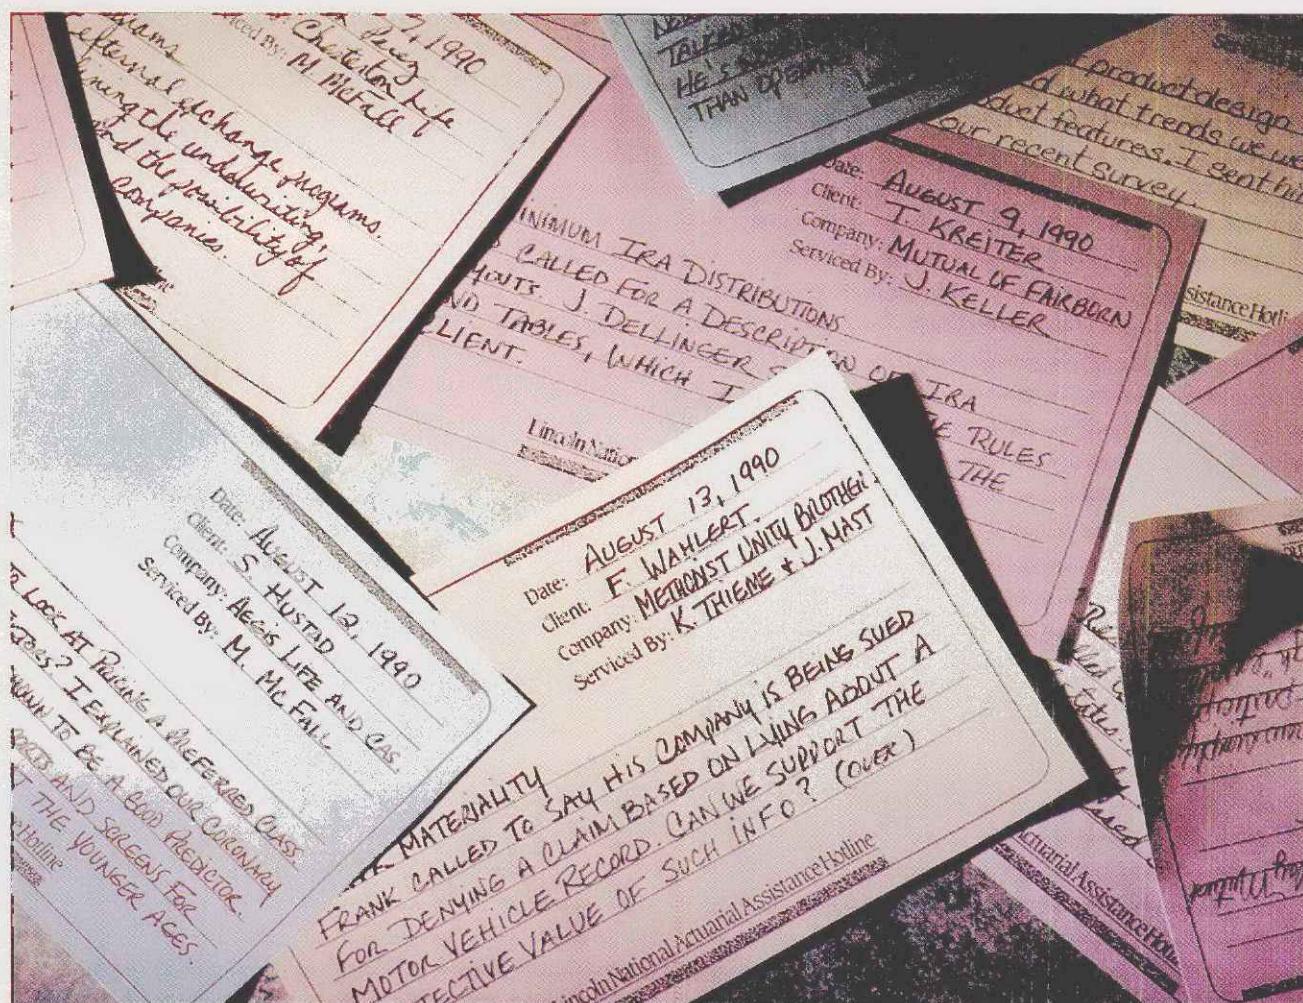 7, 1990
Perez
Chesterton Life
M. McFall
ced By:
rams
eternal exchange programs.
ning the underwriting,
and the possibility of
companies.
TALKED
HE'S
THAN OPE
product design
d what trends we
duct features. I sent hi
our recent survey.
sistance Hotli
Date: AUGUST 9, 1990
Client: T. KREITER
Company: MUTUAL OF FAIRBORN
Serviced By: J. KELLER
INIMUM IRA DISTRIBUTIONS
CALLED FOR A DESCRIPTION OF IRA
YOUTS. J. DELLINGER S
E RULES
ND TABLES, WHICH I
THE
LIENT.
Lincoln Natio
Date: AUGUST 12, 1990
Client: S. HUSTAD
Company: AEGIS LIFE AND CAS.
Serviced By: M. MCFALL
TO LOOK AT PRICING A PREFERRED CLASS.
TORS? I EXPLAINED OUR CORONARY
OWN TO BE A GOOD PREDICTOR.
ORTS AND SCREENS FOR
T THE YOUNGER AGES.
e Hotline
Date: AUGUST 13, 1990
Client: F. WAHLERT.
Company: METHODIST UNITY BROTHER.
Serviced By: K. THIEME & J. MAST
MATERIALITY
FRANK CALLED TO SAY HIS COMPANY IS BEING SUED
FOR DENYING A CLAIM BASED ON LYING ABOUT A
MOTOR VEHICLE RECORD. CAN WE SUPPORT THE
TECTIVE VALUE OF SUCH INFO? (OVER)
Lincoln National Actuarial Assistance Hotline
tates
ctuarial Assistance Ho